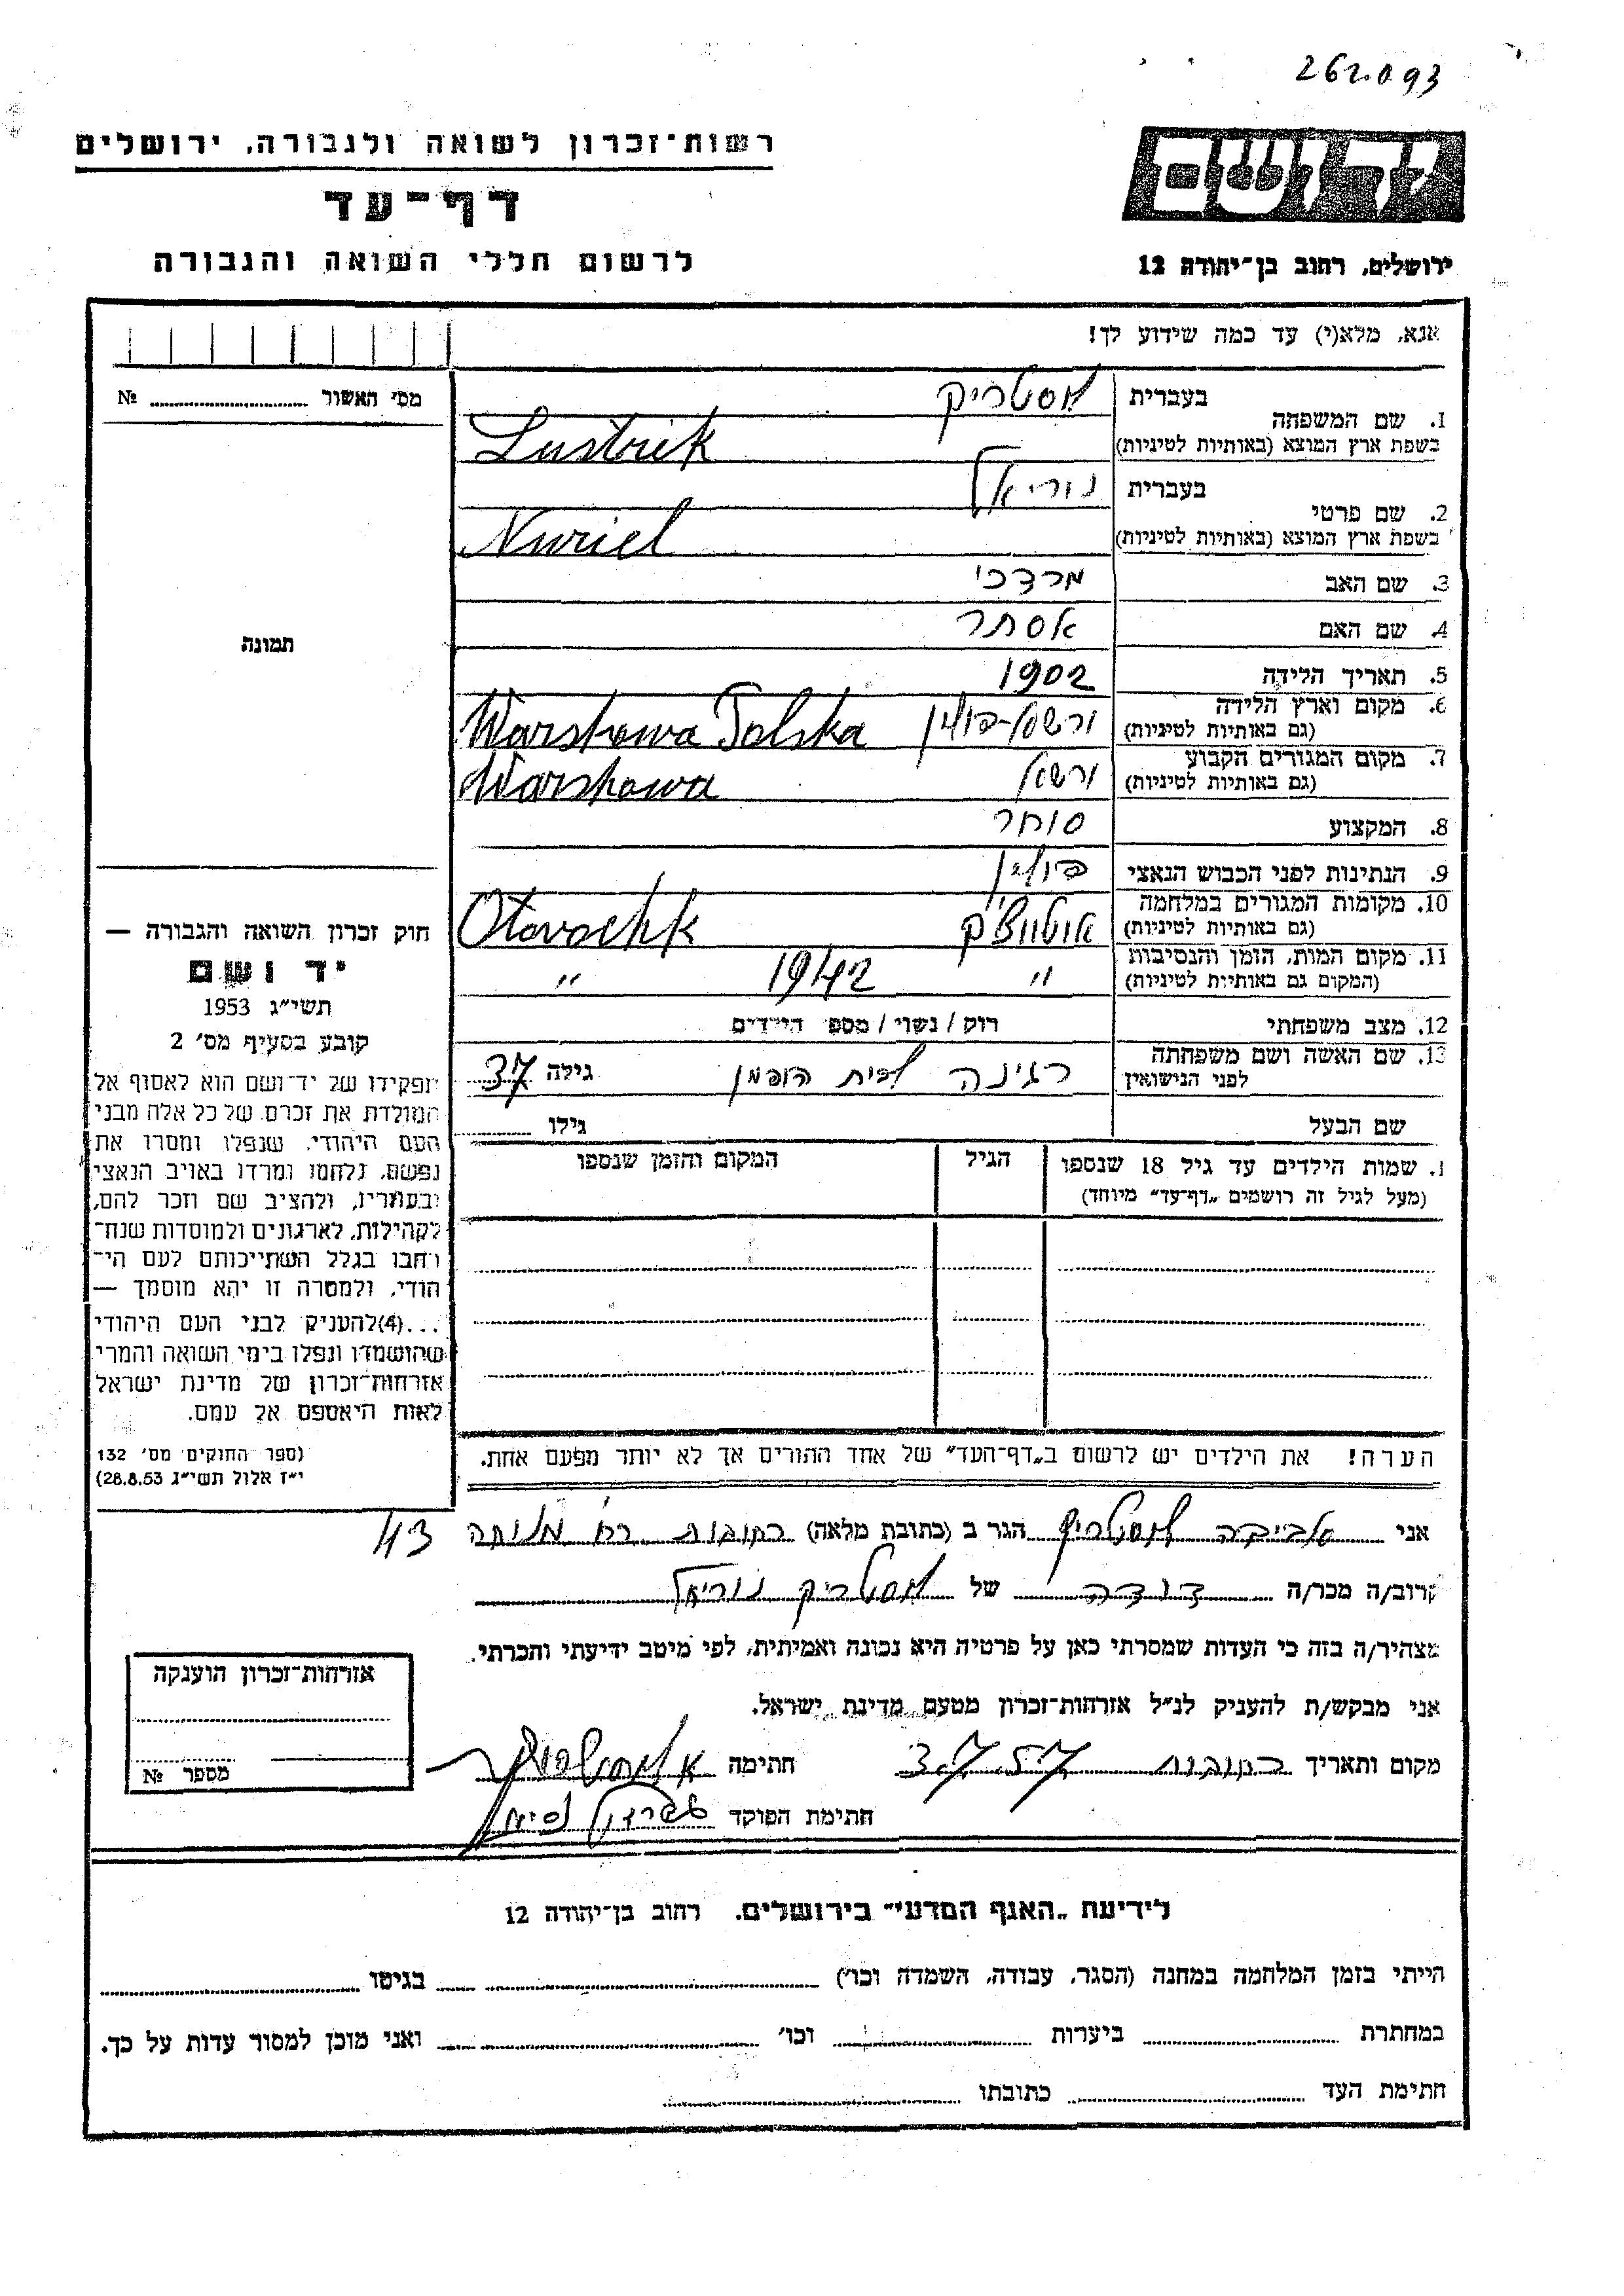 262093
רשות־זכרון לשואה ולגבורה, ירושלים
דף־עד
לרשום חללי השואה והגבורה
יד ושם
ירושלים, רחוב בן־יהודה 12
אנא, מלא(י) עד כמה שידוע לך!
מס׳ האשור № 
1. שם המשפחה
בעברית לוסטריק
בשפת ארץ המוצא (באותיות לטיניות) Lustrik
2. שם פרטי
בעברית נוריאל
בשפת ארץ המוצא (באותיות לטיניות) Nuriel
3. שם האב מרדכי
4. שם האם אסתר
5. תאריך הלידה 1902
6. מקום וארץ הלידה
(גם באותיות לטיניות) ורשא-פולין Warshawa Polska
7. מקום המגורים הקבוע
(גם באותיות לטיניות) ורשא Warshawa
8. המקצוע סוחר
9. הנתינות לפני הכבוש הנאצי פולין
10. מקומות המגורים במלחמה
(גם באותיות לטיניות) אוטווצק Otwochk
11. מקום המות, הזמן והנסיבות
(המקום גם באותיות לטיניות) " 1942 "
12. מצב משפחתי רוק / נשוי / מספ׳ הילדים
13. שם האשה ושם משפחתה
לפני הנישואין רגינה לבית הופמן גילה 37
שם הבעל גילו
1. שמות הילדים עד גיל 18 שנספו
(מעל לגיל זה רושמים „דף־עד״ מיוחד)
הגיל
המקום והזמן שנספו
הערה! את הילדים יש לרשום ב„דף־העד״ של אחד ההורים אך לא יותר מפעם אחת.
תמונה
חוק זכרון השואה והגבורה —
יד ושם
תשי״ג 1953
קובע בסעיף מס׳ 2
תפקידו של יד־ושם הוא לאסוף אל
המולדת את זכרם של כל אלה מבני
העם היהודי, שנפלו ומסרו את
נפשם, נלחמו ומרדו באויב הנאצי
ובעוזריו, ולהציב שם וזכר להם,
לקהילות, לארגונים ולמוסדות שנח־
רחבו בגלל השתייכותם לעם הי־
הודי, ולמטרה זו יהא מוסמך —
...(4)להעניק לבני העם היהודי
שהושמדו ונפלו בימי השואה והמרי
אזרחות־זכרון של מדינת ישראל
לאות היאספם אל עמם.
(ספר החוקים מס׳ 132
י״ז אלול תשי״ג 28.8.53)
אני אביבה לוסטריק הגר ב (כתובת מלאה) רחובות רח׳ מנוחה 43
קרוב/ה מכר/ה דודה של לוסטריק נוריאל
מצהיר/ה בזה כי העדות שמסרתי כאן על פרטיה היא נכונה ואמיתית, לפי מיטב ידיעתי והכרתי.
אני מבקש/ת להעניק לנ״ל אזרחות־זכרון מטעם מדינת ישראל.
מקום ותאריך רחובות 3.7.57 חתימה
חתימת הפוקד
אזרחות־זכרון הוענקה
מספר №
לידיעת „האגף המדעי״ בירושלים, רחוב בן־יהודה 12
הייתי בזמן המלחמה במחנה (הסגר, עבודה, השמדה וכו׳) בגיטו
במחתרת ביערות וכו׳ ואני מוכן למסור עדות על כך.
חתימת העד כתובתו